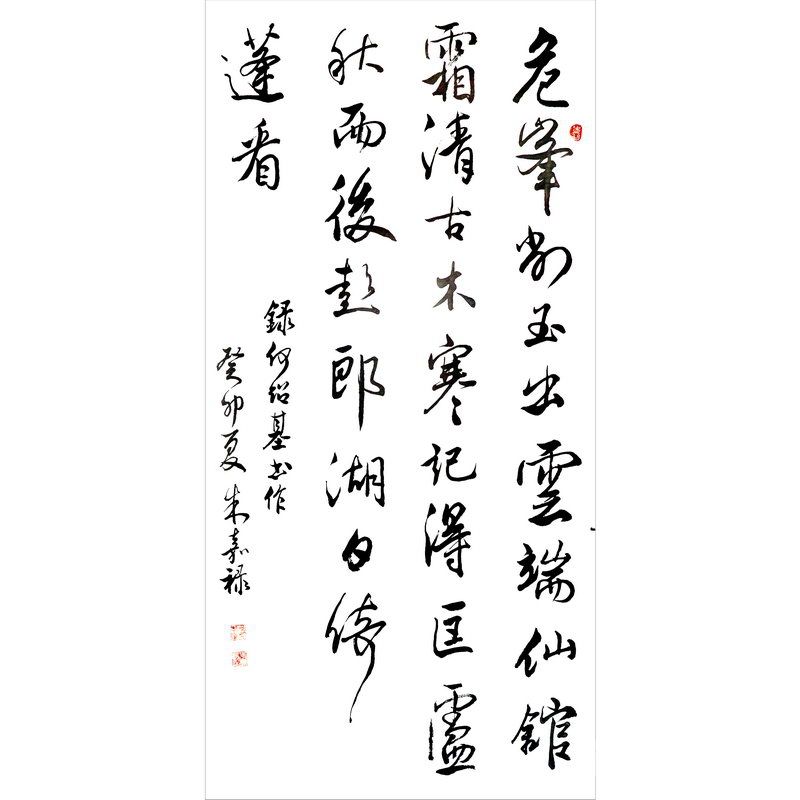 危峯削玉出雲端仙館
霜清古木寒記得匡廬
秋雨後彭郎湖口倚
蓬看
録何紹基书作
癸卯夏朱嘉禄